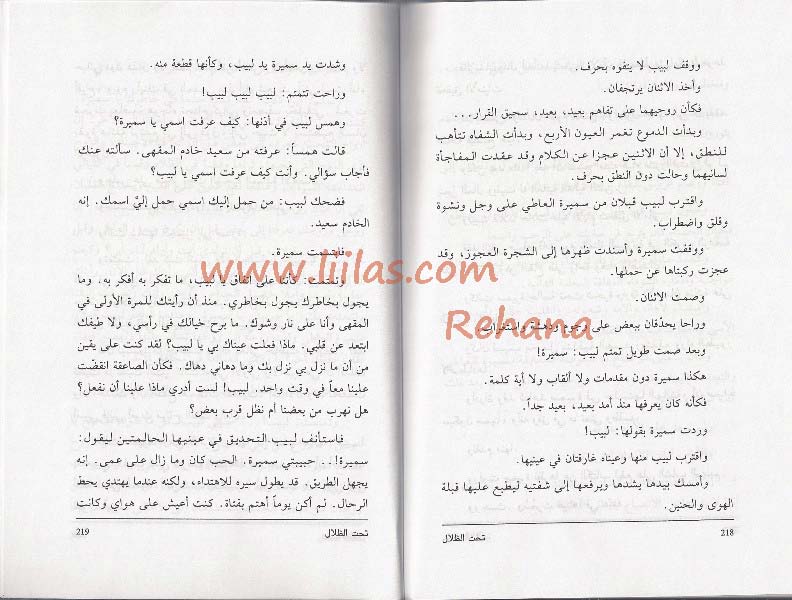 ووقف لبيب لا يتفوه بحرف.
وأخذ الاثنان يرتجفان.
فكأن روحيهما على تفاهم بعيد، بعيد، سحيق القرار...
وبدأت الدموع تغمر العيون الأربع، وبدأت الشفاه تتأهب
للنطق، إلا أن الاثنين عجزا عن الكلام وقد عقدت المفاجأة
لسانيهما وحالت دون النطق بحرف.
واقترب لبيب قبلان من سميرة العاطي على وجل ونشوة
وقلق واضطراب.
ووقفت سميرة وأسندت ظهرها إلى الشجرة العجوز، وقد
عجزت ركبتاها عن حملها.
وصمت الاثنان.
وراحا يحدّقان ببعض على وجوم ودهشة واستغراب.
وبعد صمت طويل تمتم لبيب: سميرة!
هكذا سميرة دون مقدمات ولا ألقاب ولا أية كلمة.
فكأنه كان يعرفها منذ أمد بعيد، بعيد جداً.
وردت سميرة بقولها: لبيب!
واقترب لبيب منها وعيناه غارقتان في عينيها.
وأمسك بيدها يشدها ويرفعها إلى شفتيه ليطبع عليها قبلة
الهوى والحنين.
218
تحت الظلال
وشدت يد سميرة يد لبيب، وكأنها قطعة منه.
وراحت تتمتم: لبيب لبيب لبيب!
وهمس لبيب في أذنها: كيف عرفت اسمي يا سميرة؟
قالت همساً: عرفته من سعيد خادم المقهى. سألته عنك
فأجاب سؤالي. وأنت كيف عرفت اسمي يا لبيب؟
فضحك لبيب: من حمل إليك اسمي حمل إليّ اسمك. إنه
الخادم سعيد.
فابتسمت سميرة.
وتمتمت: كأننا على اتفاق يا لبيب، ما تفكر به أفكر به. وما
يجول بخاطرك يجول بخاطري. منذ أن رأيتك للمرة الأولى في
المقهى وأنا على نار وشوك. ما برح خيالك في رأسي، ولا طيفك
ابتعد عن قلبي. ماذا فعلت عيناك بي يا لبيب؟ لقد كنت على يقين
من أن ما نزل بي نزل بك وما دهاني دهاك. فكأن الصاعقة انقضّت
علينا معاً في وقت واحد. لبيب! لست أدري ماذا علينا أن نفعل؟
هل نهرب من بعضنا أم نظل قرب بعض؟
فاستأنف لبيب التحديق في عينيها الحالمتين ليقول:
سميرة!.. حبيبتي سميرة. الحب كان وما زال على عمى. إنه
يجهل الطريق. قد يطول سيره للاهتداء، ولكنه عندما يهتدي يحط
الرحال. لم أكن يوماً أهتم بفتاة. كنت أعيش على هواي وكانت
تحت الظلال
219
www.liilas.com
Rehana